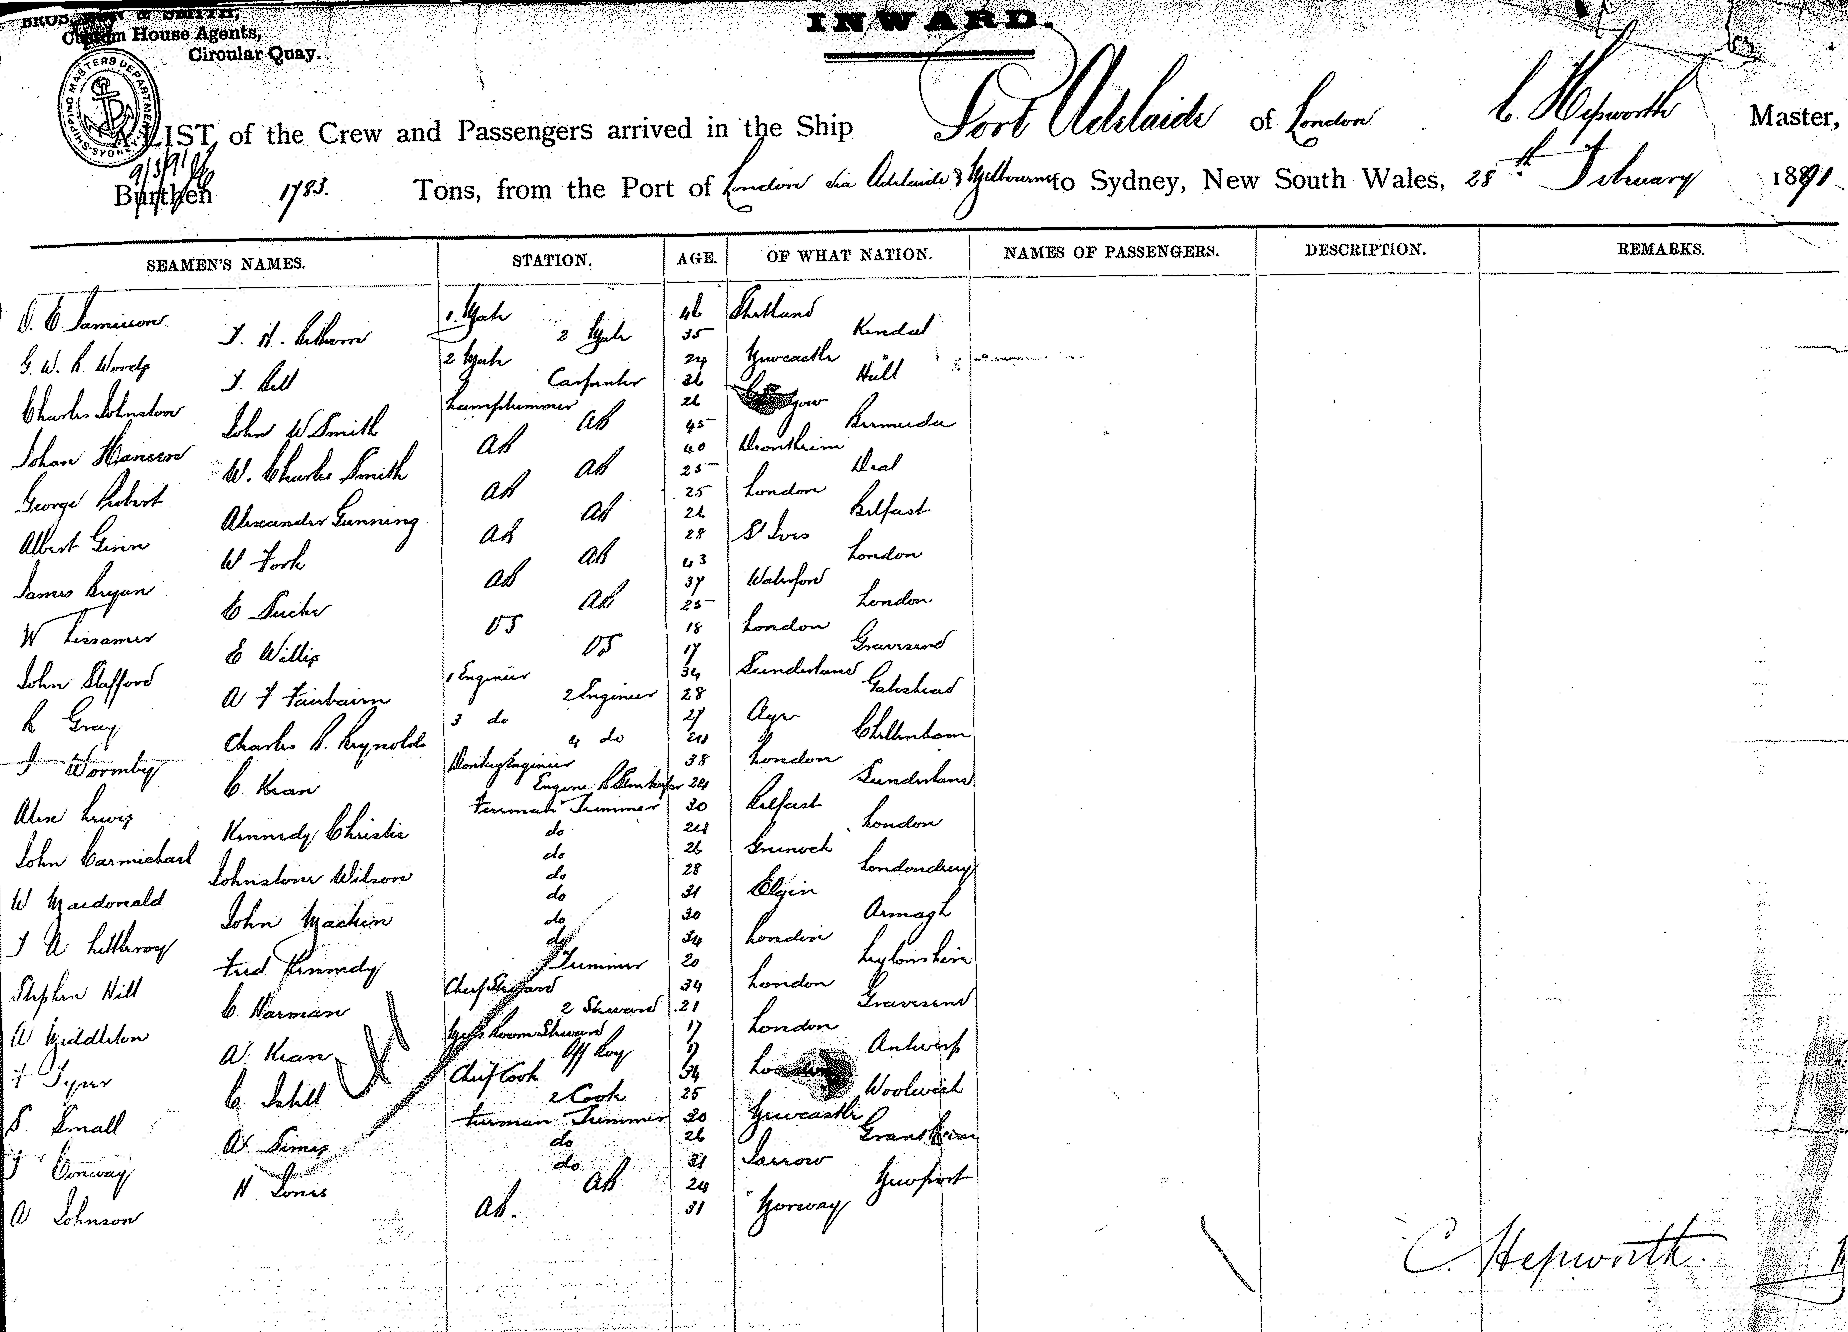 BROS. & SMITH,
Custom House Agents,
Circular Quay.
INWARD.
SHIPPING MASTERS DEPARTMENT SYDNEY
A LIST of the Crew and Passengers arrived in the Ship Port Adelaide of London C. Hepworth Master,
9/3/91
Burthen 1783. Tons, from the Port of London via Adelaide & Melbourne to Sydney, New South Wales, 28th February 1891
SEAMEN'S NAMES. STATION. AGE. OF WHAT NATION. NAMES OF PASSENGERS. DESCRIPTION. REMARKS.
Jamieson 1. Mate 46 Shetland
2 Mate 35 Kendal
G. W. R. Woods 2 Mate 24 Newcastle
J. Bell Carpenter 36 Hull
Charles Johnston Lamptrimmer 26
John W Smith AB 45 Bermuda
Johan Hansen AB 40 Drontheim
W. Charles Smith AB 25 Deal
George AB 25 London
Alexander Gunning AB 26 Belfast
Albert Ginn AB 28 St Ives
W York AB 43 London
James Bryan AB 37 Waterford
E AB 25 London
W OS 18 London
E Willis OS 17 Gravesend
John Stafford 1 Engineer 34 Sunderland
A F Fairbairn 2 Engineer 28 Gateshead
R Gray 3 do 27 Ayr
Charles R. Reynolds 4 do 24 Cheltenham
J Wormby Donkey Engineer 38 London
C. Kean Engine R Storekeeper 24 Sunderland
Alex Lewis Fireman Trimmer 30 Belfast
Kennedy Christie do 24 London
John Carmichael do 26 Greenock
Johnstone Wilson do 28 Londonderry
W Macdonald do 31 Elgin
John Mackin do 30 Armagh
J A do 34 London
Fred Kennedy Trimmer 20
Stephen Hill Chief Steward 34 London
C. Harman 2 Steward 21 Gravesend
A Middleton Mess Room Steward 17 London
A. Kean Off Boy Antwerp
F Chief Cook 34 London
C 2 Cook 25 Woolwich
S. Small Fireman Trimmer 30 Newcastle
A. Simes do 26
J Conway do 31 Jarrow
H. Jones AB 24 Newport
A Johnson AB. 31 Norway
C. Hepworth.